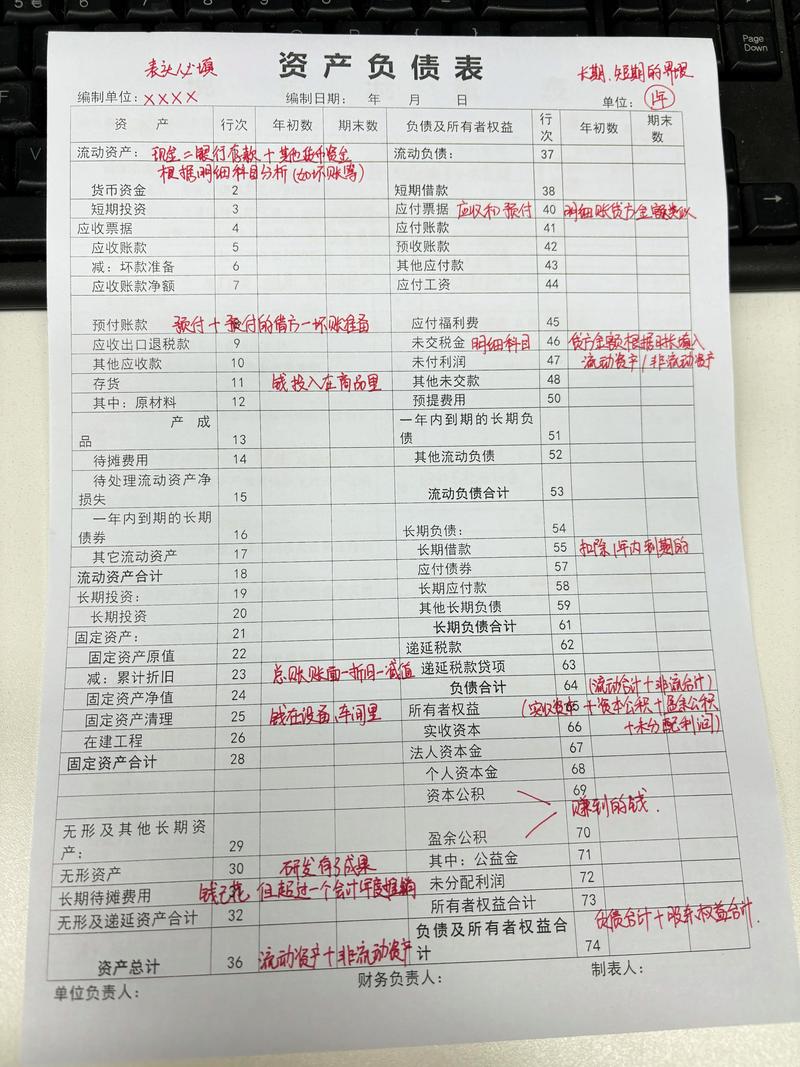 表头必填
资产负债表
长期、短期的界限
编制单位：XXXX 编制日期： 年 月 日 单位：1年
资 产 行次 年初数 期末数 负债及所有者权益 行次 年初数 期末数
流动资产： 现金=银行存款+其他货币资金 流动负债： 37
根据明细科目分析(如坏账等)
货币资金 2 短期借款 38
短期投资 3 应付票据 应收和预付 40 明细账贷方金额类似
应收票据 4 应付账款 41
应收账款 5 预收账款 42
减：坏款准备 6 其他应付款 43
应收账款净额 7 应付工资 44
预付账款 预付+预付的借方-坏账准备 应付福利费 45
应收出口退税款 9 未交税金 明细科目 46 贷方金额根据时长填入
其他应收款 10 未付利润 47 流动资产/非流动资产
存货 11 钱投入在商品里 其他未交款 48
其中：原材料 12 预提费用 50
产成品 13 一年内到期的长期负债 51
待摊费用 14 其他流动负债 52
待处理流动资产净损失 15 流动负债合计 53
一年内到期的长期债券 16 长期负债： 54
其它流动资产 17 长期借款 55 扣除1年内到期的
流动资产合计 18 应付债券 57
长期投资： 19 长期应付款 58
长期投资 20 其他长期负债 59
固定资产： 21 长期负债合计 61
固定资产原值 22 递延税款 62
减：累计折旧 23 总账账面-折旧-减值 递延税款贷项 63
固定资产净值 24 负债合计 64 (流动合计+非流合计)
固定资产清理 25 钱在设备、车间里 所有者权益 65 (实收资本+资本公积+盈余公积
在建工程 26 实收资本 66 +未分配利润)
固定资产合计 28 法人资本金 67
个人资本金 68
资本公积 69
赚到的钱.
无形及其他长期资产： 29 盈余公积 70
无形资产 30 研发有了成果 其中：公益金 71
长期待摊费用 钱已花 但超过一个会计年度摊销 未分配利润 72
无形及递延资产合计 32 所有者权益合计 73
负债合计+股东权益合计.
资产总计 36 流动资产+非流动资产 负债及所有者权益合计 74
单位负责人： 财务负责人： 制表人：